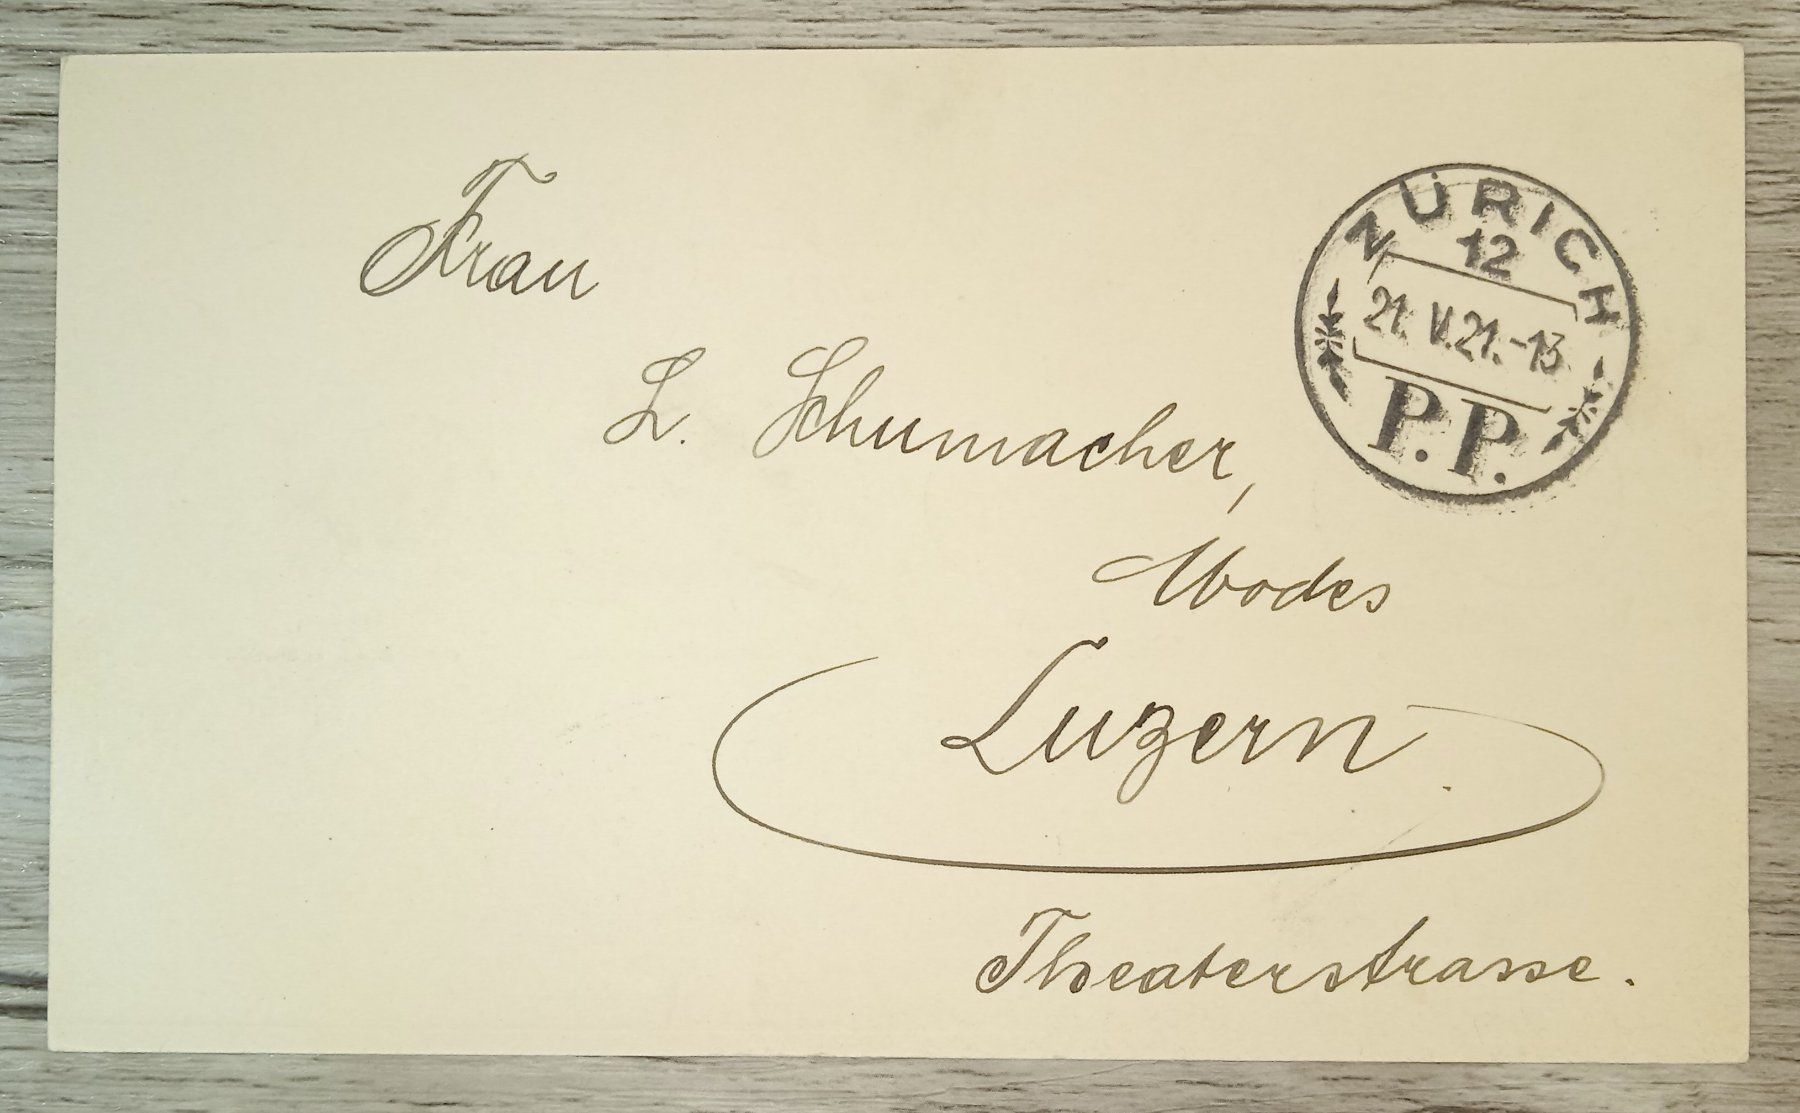 Frau
L. Schumacher,
Modes
Luzern.
Theaterstrasse.
ZÜRICH
12
21. V. 21.-13
P.P.